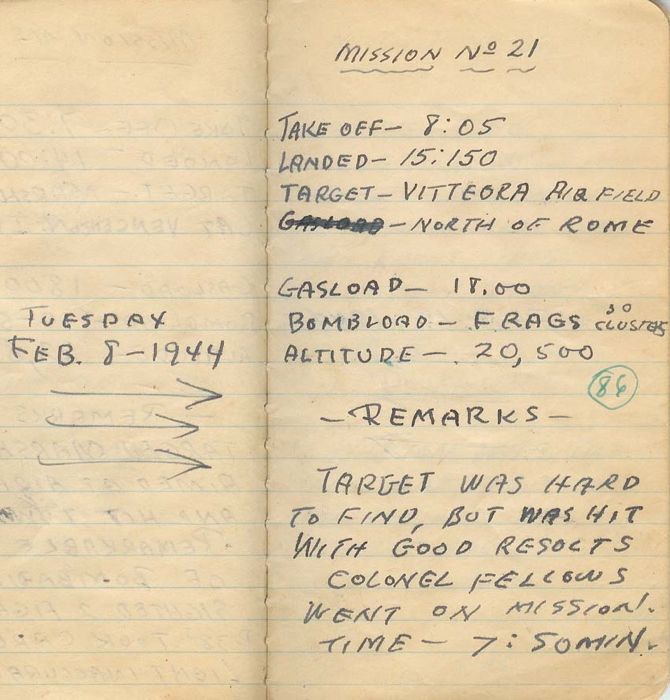 MISSION Nº 21
TAKE OFF— 8:05
LANDED— 15:150
TARGET— VITTEGRA AIR FIELD
GASLOAD — NORTH OF ROME
GASLOAD— 18.00
BOMBLOAD— FRAGS 30 CLUSTERS
ALTITUDE—. 20,500
86
TUESDAY
FEB. 8-1944
—REMARKS—
TARGET WAS HARD
TO FIND, BUT WAS HIT
WITH GOOD RESOLTS
COLONEL FELLOWS
WENT ON MISSION.
TIME— 7:50MIN.